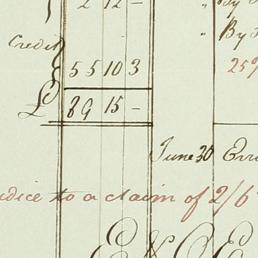 2 12 -
" By
Credit
" By
55 10 3
25%
£ 89 15 -
June 30 Erro
dice to a claim of 2/6
E & O E